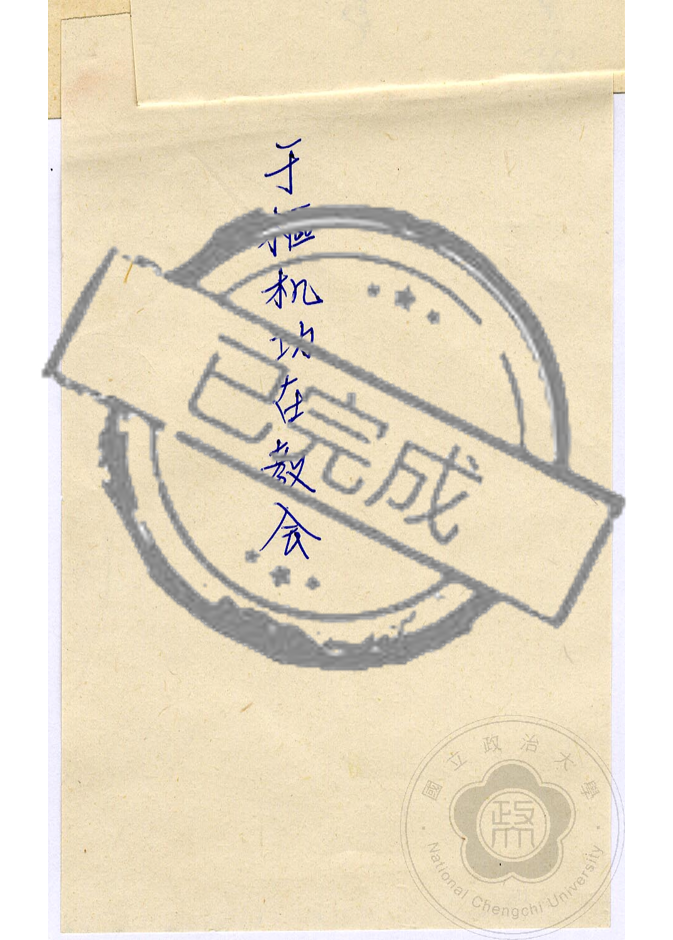 于樞机功在教会
已完成
國立政治大學
政大
National Chengchi University